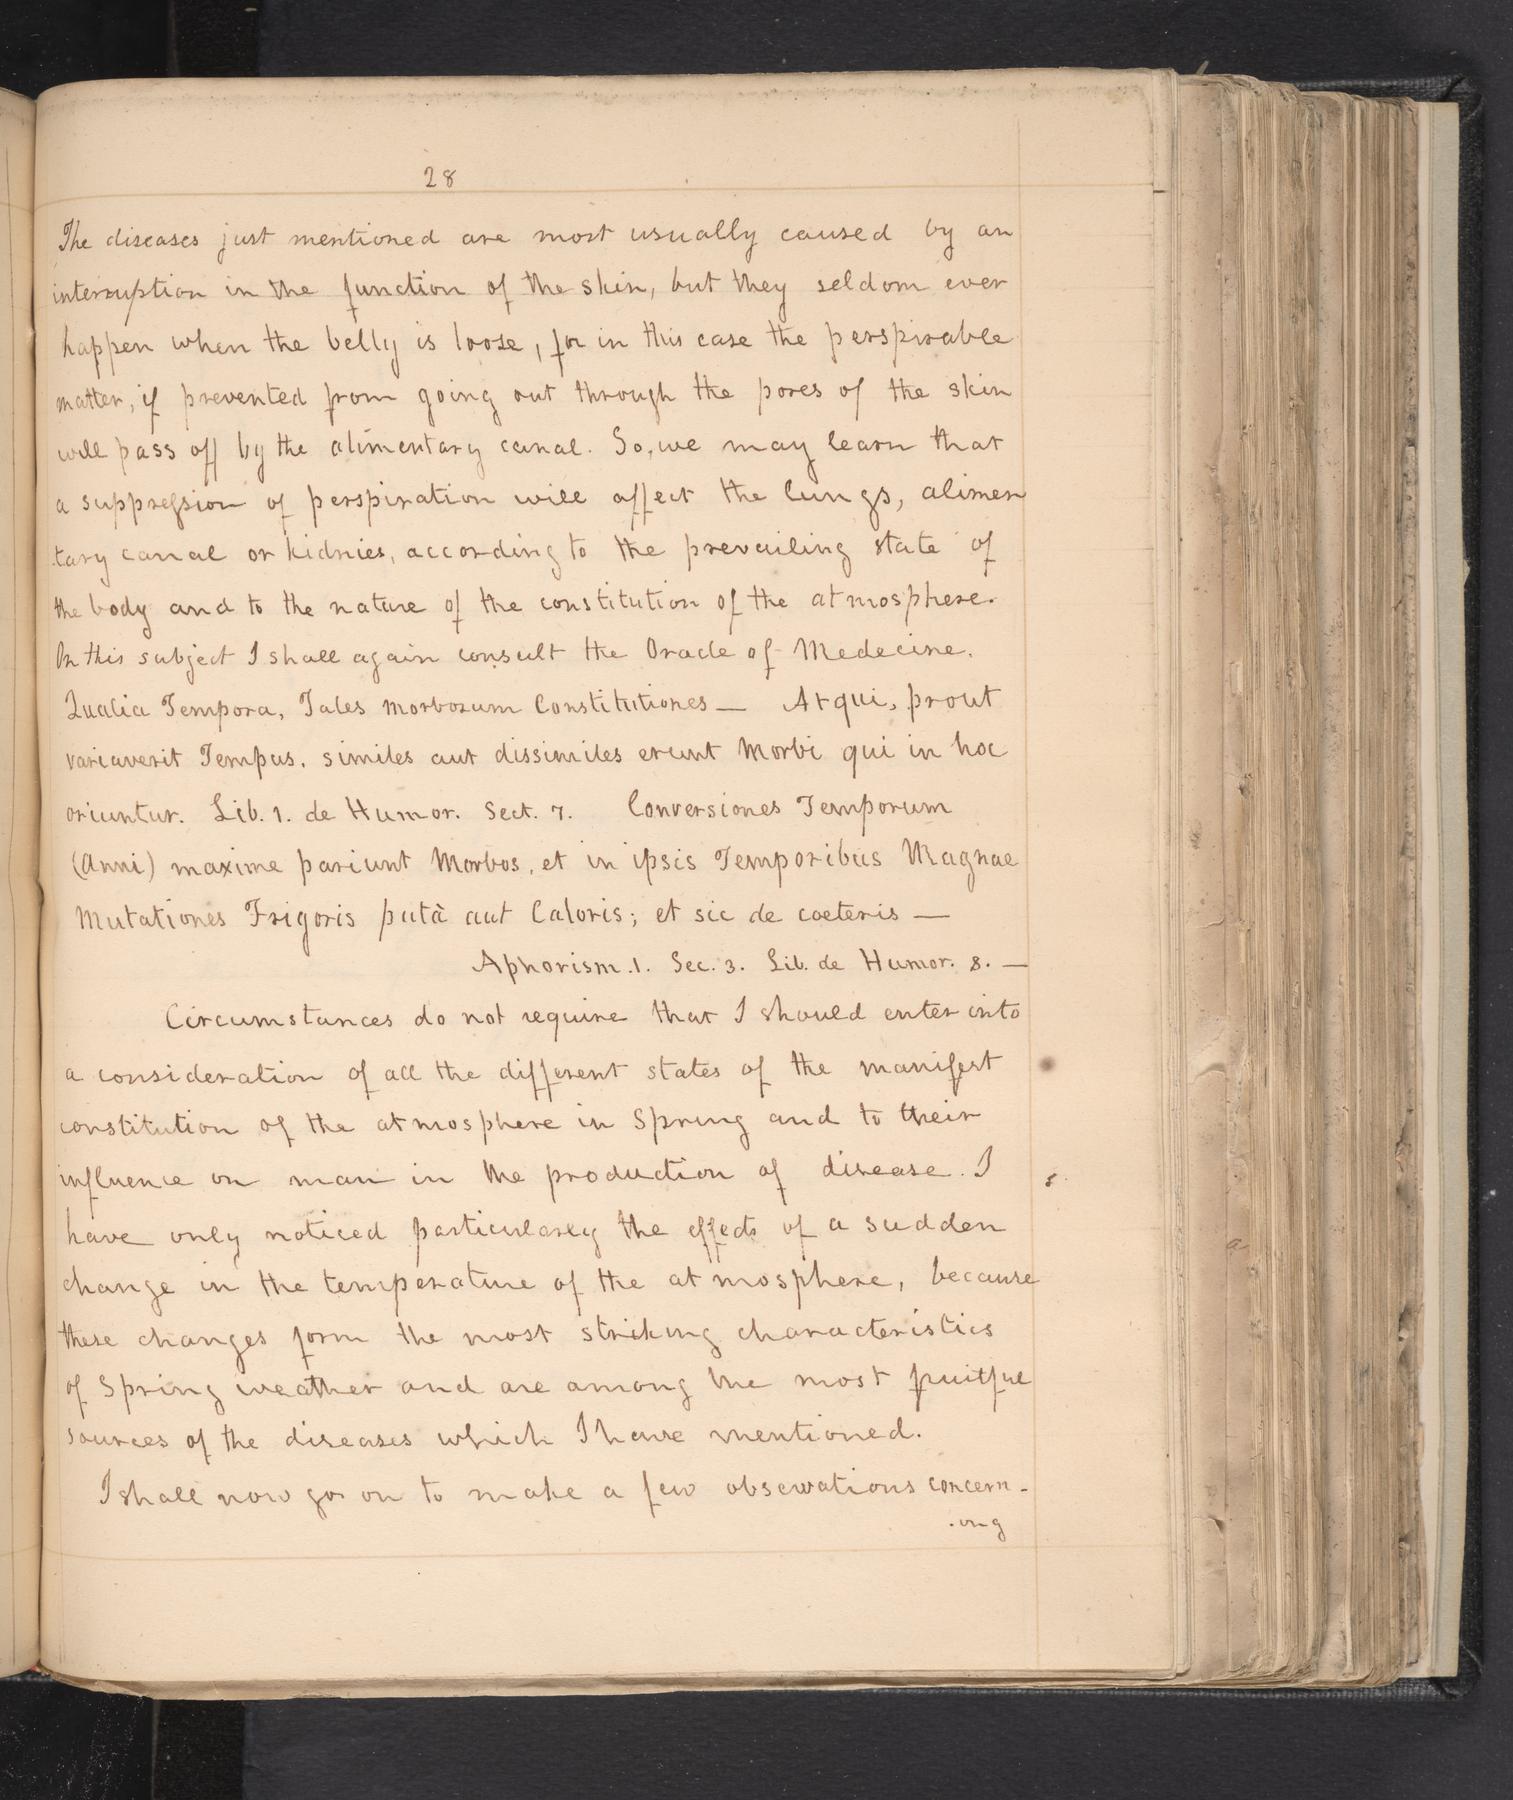 28
The diseases just mentioned are most usually caused by an
interruption in the function of the skin, but they seldom ever
happen when the belly is loose, for in this case the perspirable
matter, if prevented from going out through the pores of the skin
will pass off by the alimentary canal. So, we may learn that
a suppression of perspiration will affect the lungs, alimen
tary canal or kidnies, according to the prevailing state of
the body and to the nature of the constitution of the atmosphere.
On this subject I shall again consult the Oracle of Medecine.
Qualia Tempora, Tales morborum Constitutiones — Atqui, prout
variaverit Tempus, similes aut dissimiles erunt Morbi qui in hoc
oriuntur. Lib. 1. de Humor. Sect. 7. Conversiones Temporum
(Anni) maxime pariunt Morbos, et in ipsis Temporibus Magnae
Mutationes Frigoris putà aut Caloris; et sic de coeteris —
Aphorism. 1. Sec. 3. Lib. de Humor. 8. —
Circumstances do not require that I should enter into
a consideration of all the different states of the manifest
constitution of the atmosphere in Spring and to their
influence on man in the production of disease. I
have only noticed particularly the effects of a sudden
change in the temperature of the atmosphere, because
these changes form the most striking characteristics
of Spring weather and are among the most fruitful
sources of the diseases which I have mentioned.
I shall now go on to make a few observations concern-
ing